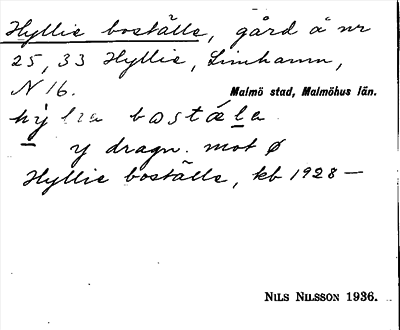 Hyllie boställe, gård å nr
25, 33 Hyllie, Limhamn,
N 16.
Malmö stad, Malmöhus län.
bostæla
y dragn. mot ø
Hyllie boställe, kb 1928 —
NILS NILSSON 1936.